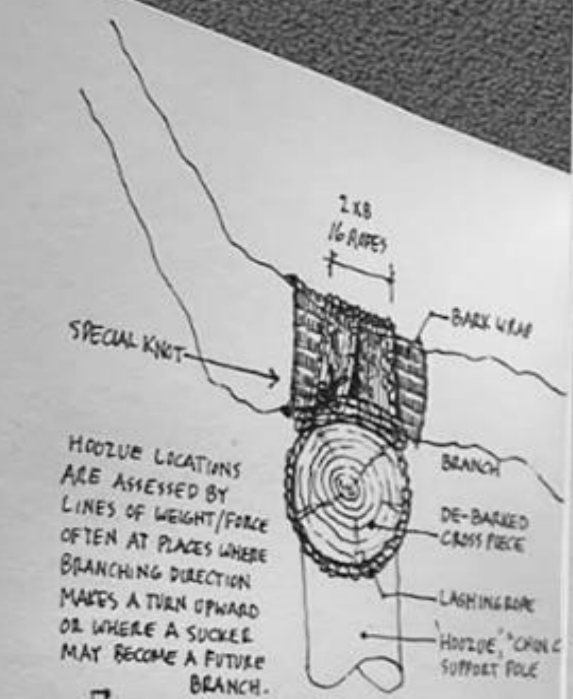 2 X 8
16 ROPES
BARK WRAP
SPECIAL KNOT
BRANCH
DE-BARKED
CROSS PIECE
LASHING ROPE
'HOOZUE',
SUPPORT POLE
HOOZUE LOCATIONS
ARE ASSESSED BY
LINES OF WEIGHT/FORCE
OFTEN AT PLACES WHERE
BRANCHING DIRECTION
MAKES A TURN UPWARD
OR WHERE A SUCKER
MAY BECOME A FUTURE
BRANCH.